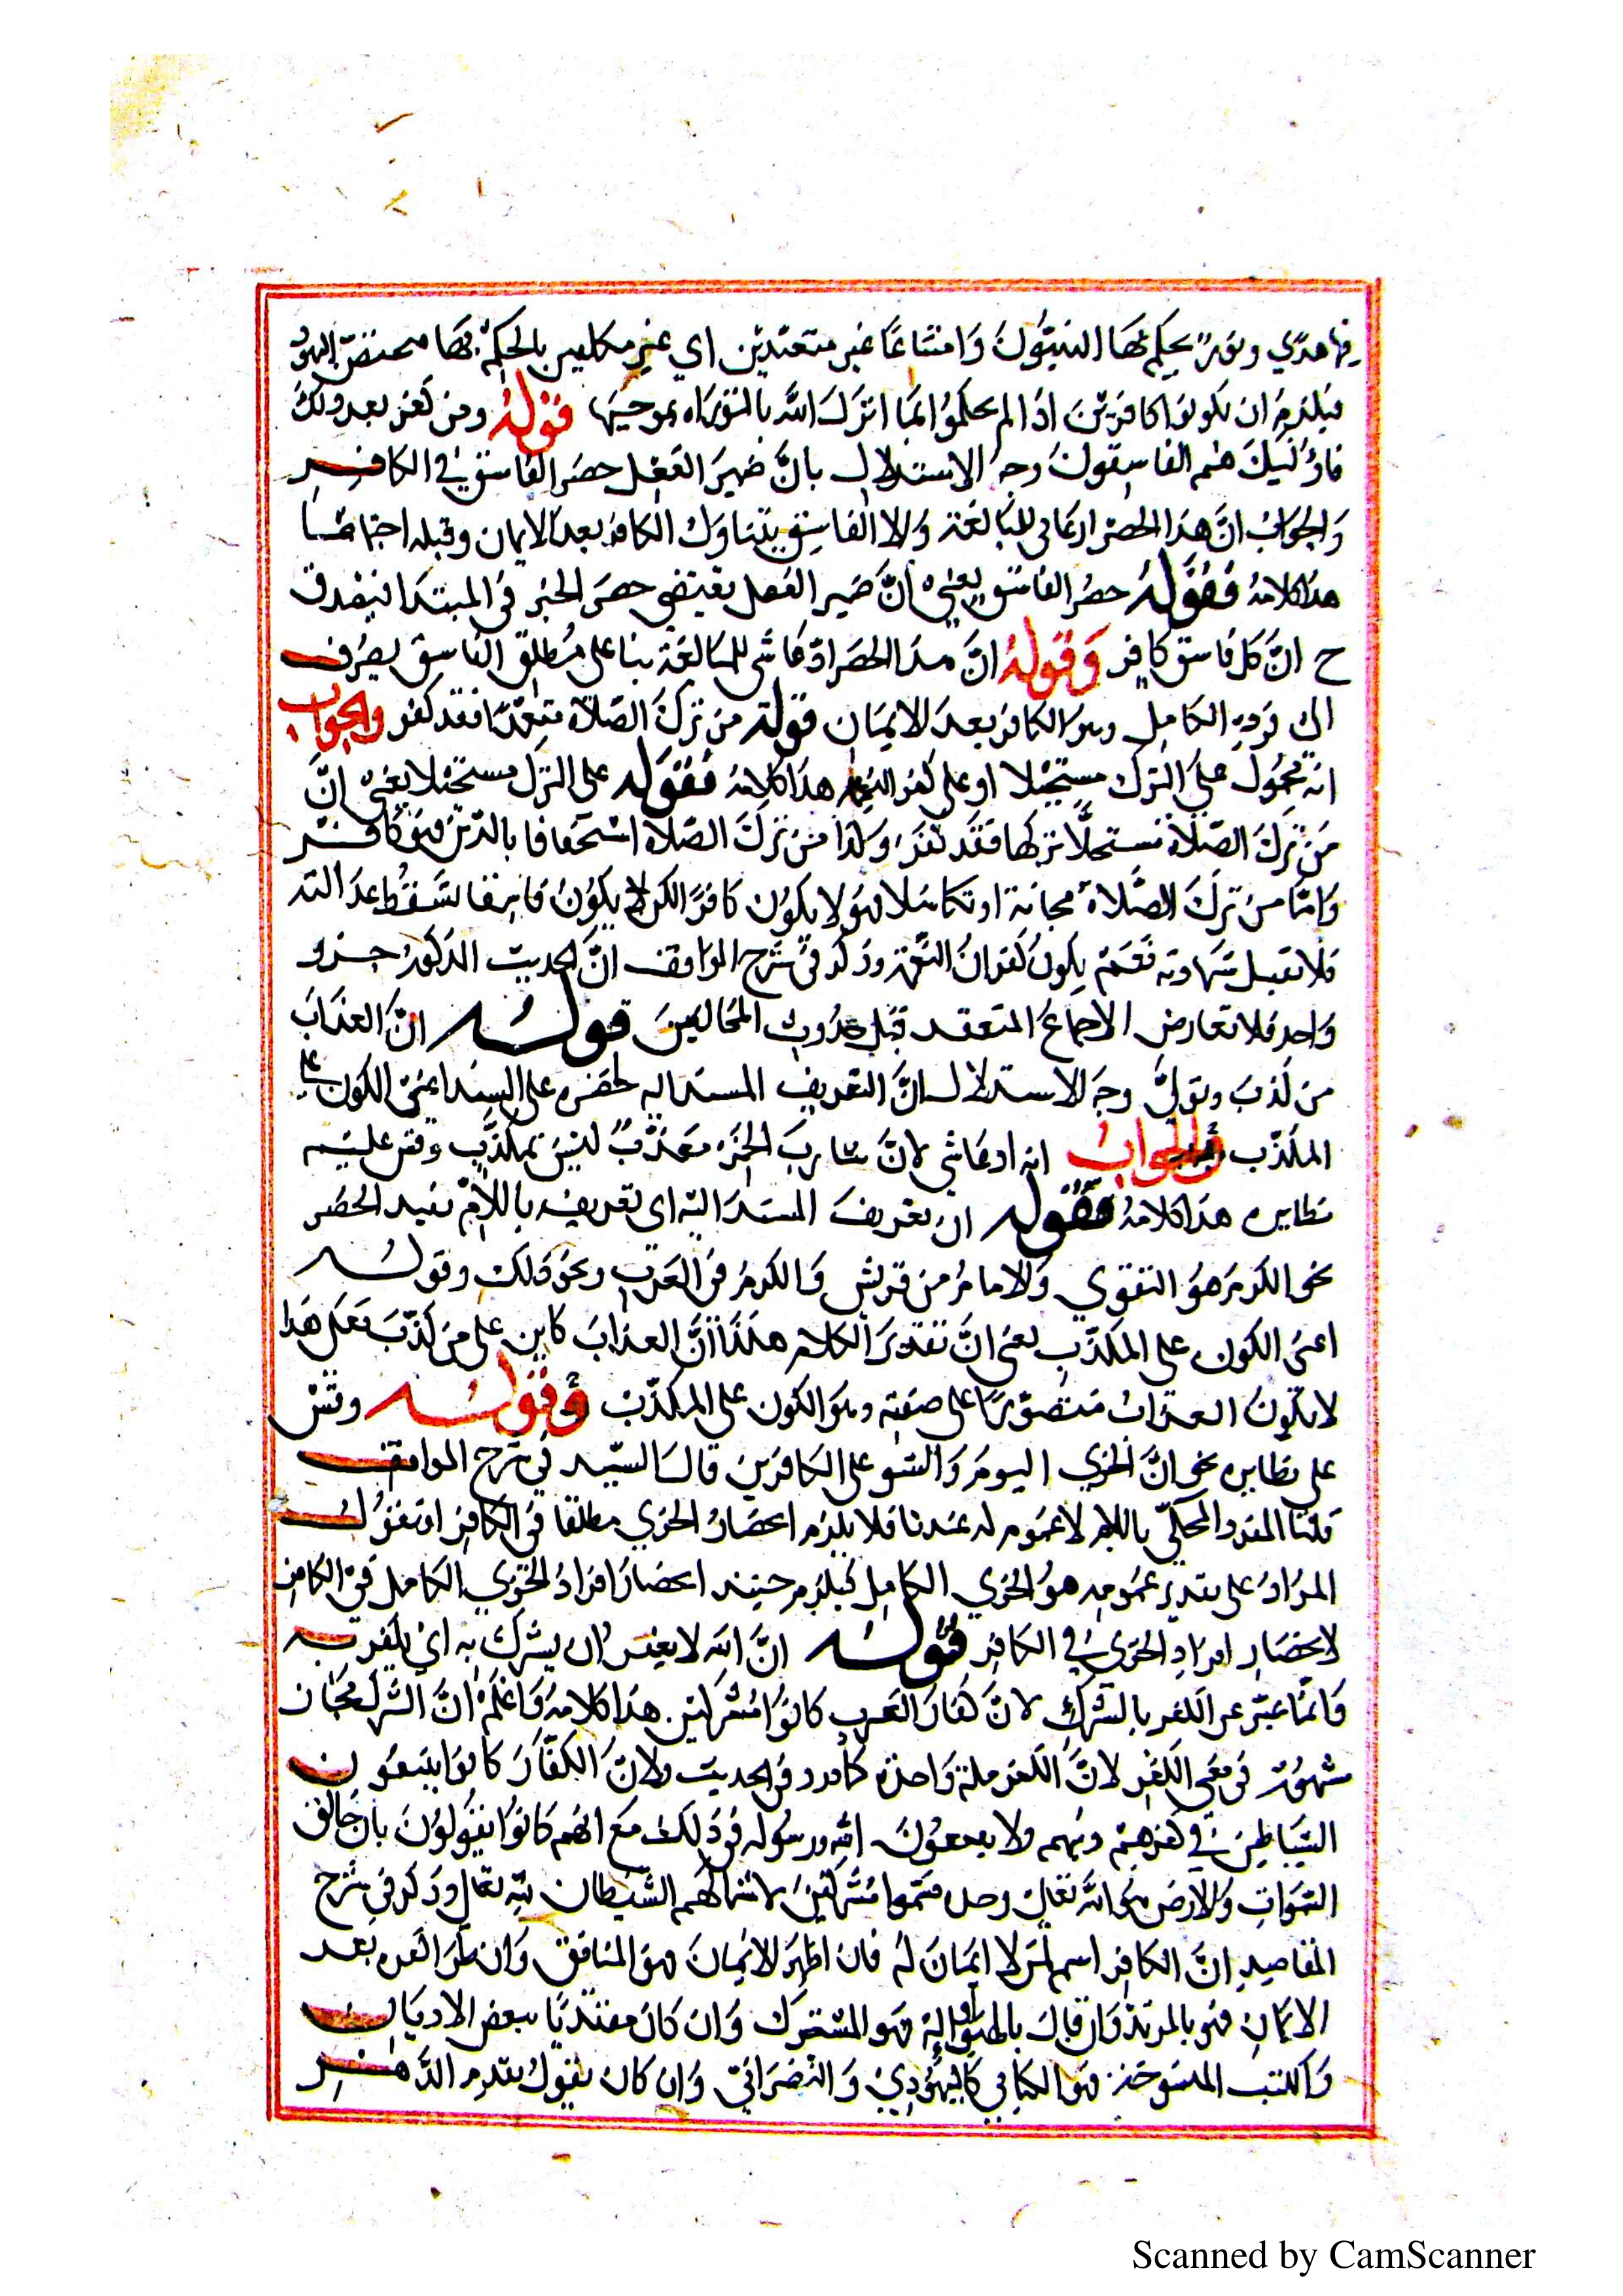 فيها هدي ونور يحكم بها النبيّون وَامتناعًا غير متعبّدين اي غير مكلفين بالحكم بها مختصّ اليهود
فيلزمُ ان يكونوا كافرين اذا لم يحكموُا بمَا انزلَ الله بالتوراه بموجبها قوله ومن كفر بعد ذلكَ
فاوُلئيكَ هم الفاسِقونَ وجهُ الاستدلالِ بانَّ ضميرَ الفَصْل حصَر الفاسق في الكافِرِ
وَالجوَابُ انَّ هذا الحصَر ادعائي للمبالغة وَالا الفاسِق يتناول الكافر بعد الايمان وقبله اجتماعًا
هذا كلامهُ فقوله حصْرُ الفاسق يعني انَّ ضمير الفصل يقتضي حصرَ الخبر في المبتدا فيصْدق
ح انَّ كل فاسق كافر وَقوله انَّ هذا الحصَر ادّعاشى للمبالغة بنا على مُطلق الفاسِق يصرف
الى فردِهِ الكامِل وهوَ الكافر بعدَ الايمان قوله من تركَ الصّلاة متعمّدًا فقد كفر والجواب
انه محمُول علىَ الترك مستحِلا او على كفر النعمه هذا كلامهُ فقوله على الترك مستحلا يعني انَّ
مَن تركَ الصّلاة مستحلاًّ تركها فقد كفَر وَكذا منْ تركَ الصلاة استخفافا بالدّين فهو كافر
وَامّا من تركَ الصَّلاة مجانة او تكاسُلا فهُو لا يكوُن كافرًا لكن يكوُنُ فاسِقا تسْقُط عدالته
فلا تقبل شهادته نعَم يكونُ كفرانُ النّعمة وذكر في شرح المواقف انَّ الحديث المذكور خبر
وَاحد فلا تعارض الاجماعَ المنعقد قبْل حدُوث المخالفينَ قوله انَّ العذابَ
من كذبَ وتولىَّ وجهَ الاستدلال انَّ التعريف المسند اليه لحصره على المسند اعنى الكون على
المكذّب والجوابُ انه ادعاشي لانَّ شاربَ الخمر معَذّبٌ ليسَ بمكذّبٍ وقس عليه
نظايره هذا كلامهُ فقوله ان تعريفَ المسندَ اليه اى تعريفه باللام يفيد الحصَر
نحو الكرم هوُ التقوي وَالامامُ من قريش وَالكرمُ في العَربِ ونحو ذلك وقوله
اعنى الكون على المكذّب يعنى انَّ تقديرَ الكلام هكذا انَّ العذابَ كاين على من كذّبَ فعَلى هَذا
لا يكونَ العذاب مقصوُرًا على صفته وهو الكون على المكذّب وَقوله وقسْ
على نظايره نحو انَّ الخزي اليومَ وَالسّو على الكافرين قال السّيد في شرح المواقف
قلنا المفرد المحلّى باللام لا عمُوم له عندنا فلا يلزم انحصَارُ الخزي مطلقا في الكافر او نقول
المرَادُ على تقدير عمُومه هوُ الخزي الكامِل فيلزم حينيذ انحصَار افرادُ الخزي الكامل في الكافر
لا انحصَار افرَادِ الخزي في الكافر قوله انَّ الله لا يغفر ان يشرك به اي يكفر به
وَانمّا عبّر عن الكفر بالشركِ لانَّ كفارَ العَرب كانوُا مُشركين هذا كلامهُ وَاعْلَم انَّ الشرك مجَاز
مشهوُر في معنى الكفر لانَّ الكفر ملة وَاحدة كما ورد في الحديث ولانَّ الكفّارَ كانوا يتبعُون
الشيَاطِين في كفرهم ولا يتبعُونَ الله ورسُوله في ذلك مع انهُم كانوُا يقوُلوُنَ بان خَالق
السّمَوات وَالارضِ هُو اللهُ تعالى وحده فسَمّوا مُشركينَ لاشراكهُم الشّيطان بالله تعالى وذكر في شرح
المقاصِد انَّ الكافر اسم لمَن لا ايمَانَ لهُ فان اظهرَ الايمَانَ فهو المنافق وَان طرا كفره بعد
الايمَان فهو بالمرتدّ وَان قال بالهين او الهةٍ فهو المشرك وَان كان متديّنًا ببعض الاديان
وَالكتب المنسُوخة فهوَ الكتابي كاليهوُدِيّ وَالنّصرَانيّ وَان كان يقوُل بقدم الدّهْر
Scanned by CamScanner